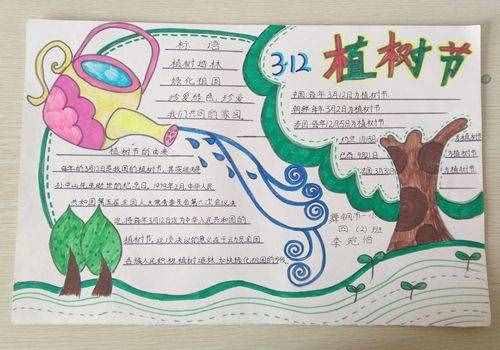 3.12 植树节
标语
植树造林
绿化祖国
珍爱绿色，珍爱
我们共同的家园
中国：每年3月12日为植树节
朝鲜：每年3月2日为植树节
为植树节
为植树节
为植树节
植树节的由来
每年的3月12日是我国的植树节，其实这是
孙中山先生逝世的纪念日，1979年2月，中华人民
共和国第五届全国人大常委会第六次会议
决定将每年3月12日定为中华人民共和国的
植树节，这项决议的意义在于动员全国
各族人民积极植树造林，加快绿化祖国的
四（2）班